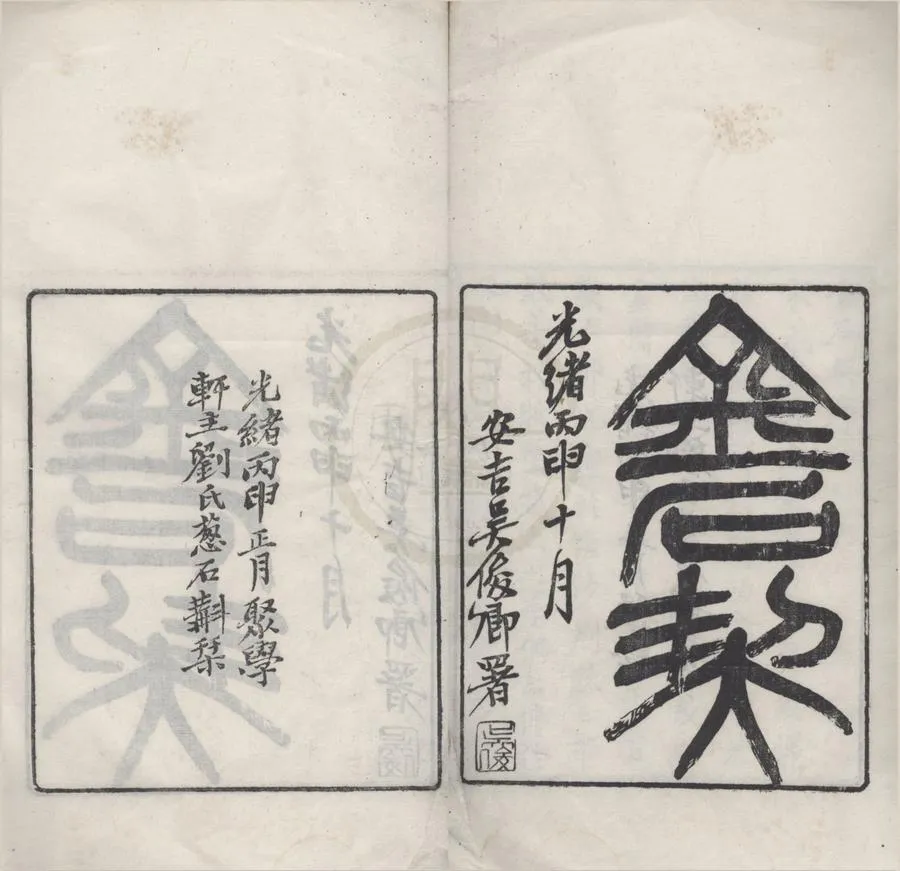 金石契
光緒丙申十月
安吉吳俊卿署
吳俊
光緒丙申正月聚學
軒主劉氏葱石斠栞